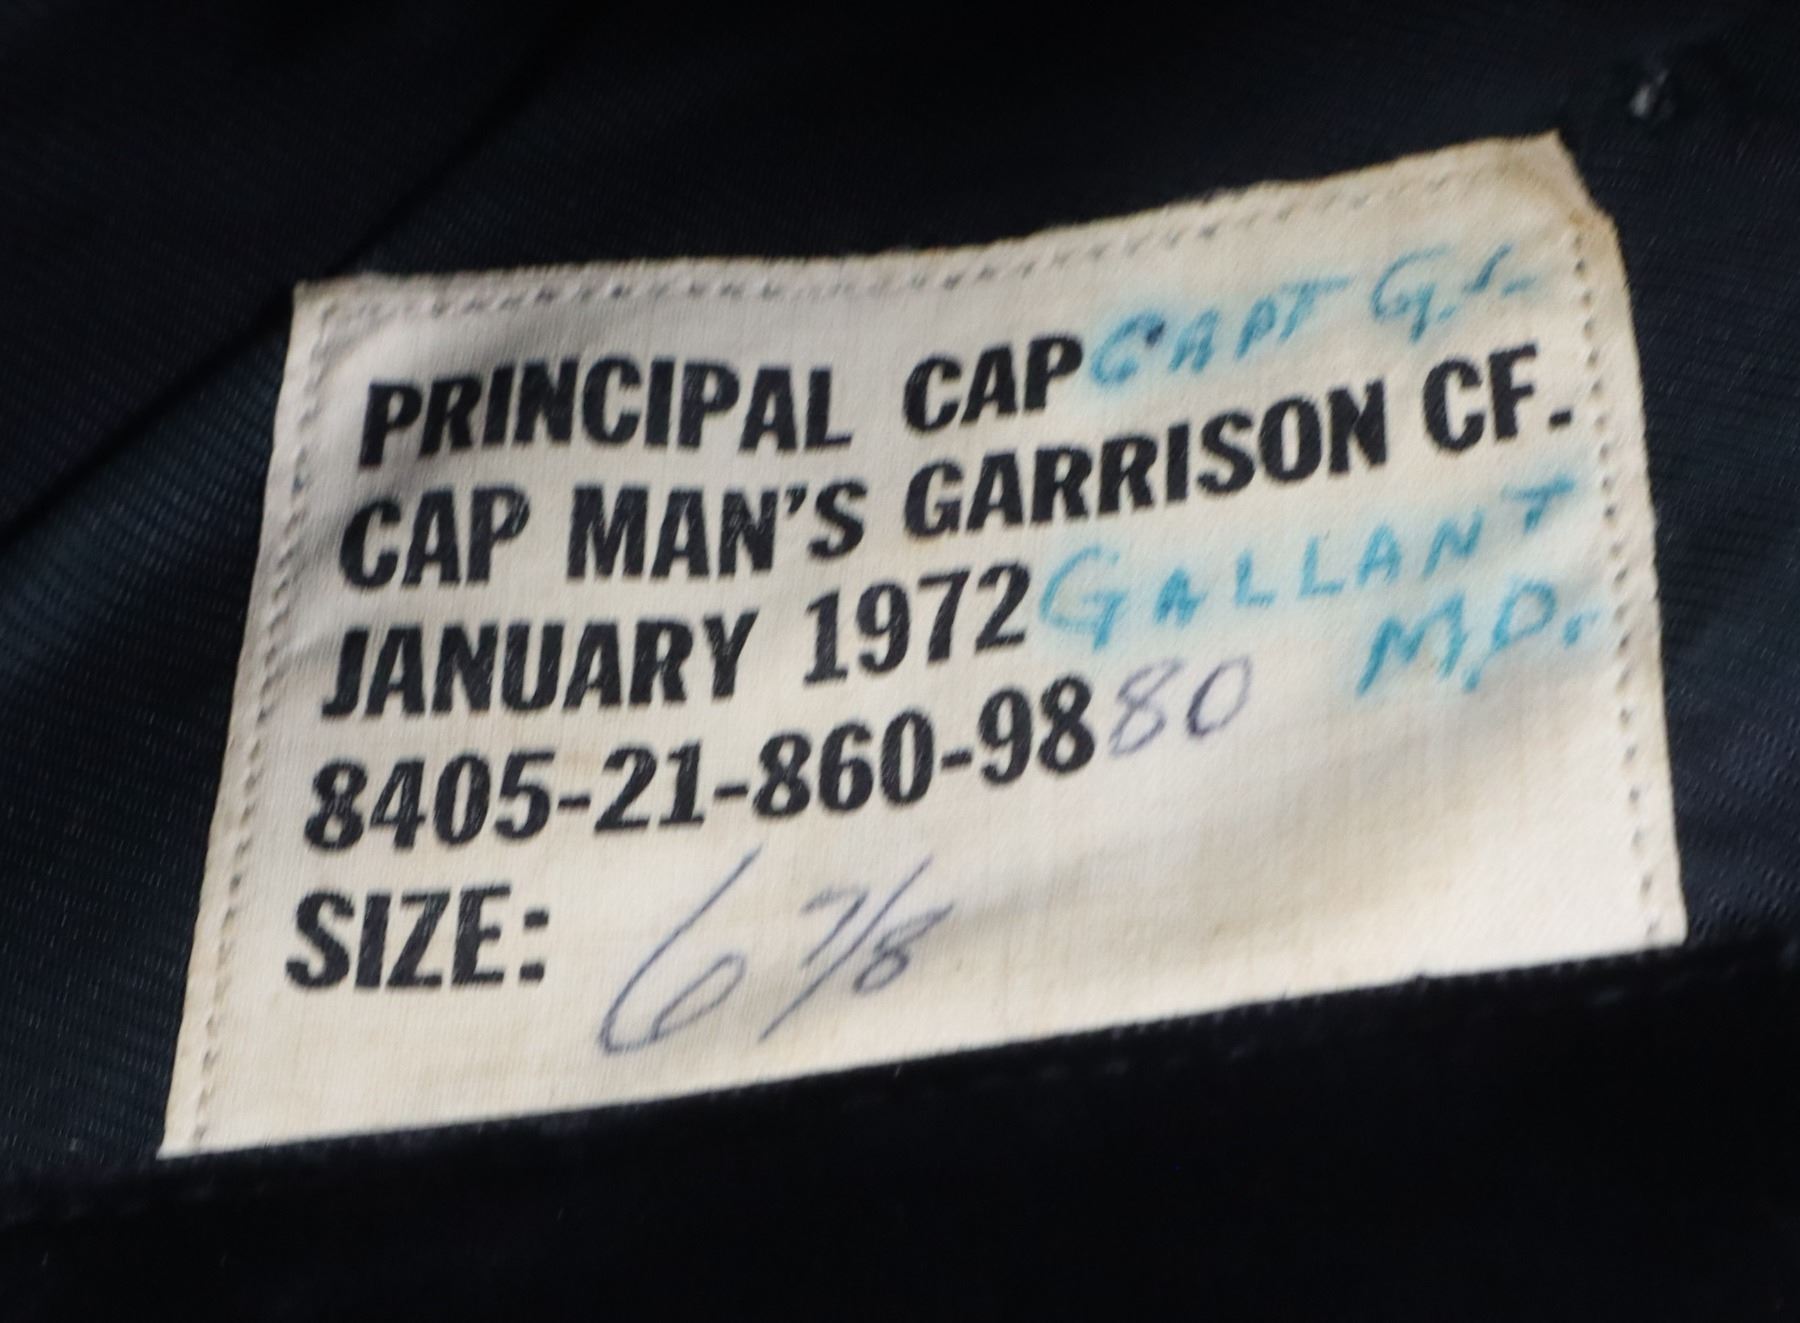 PRINCIPAL CAP CAPT G.J.
CAP MAN'S GARRISON CF.
JANUARY 1972 GALLANT
M.D.
8405-21-860-9880
SIZE: 6 7/8